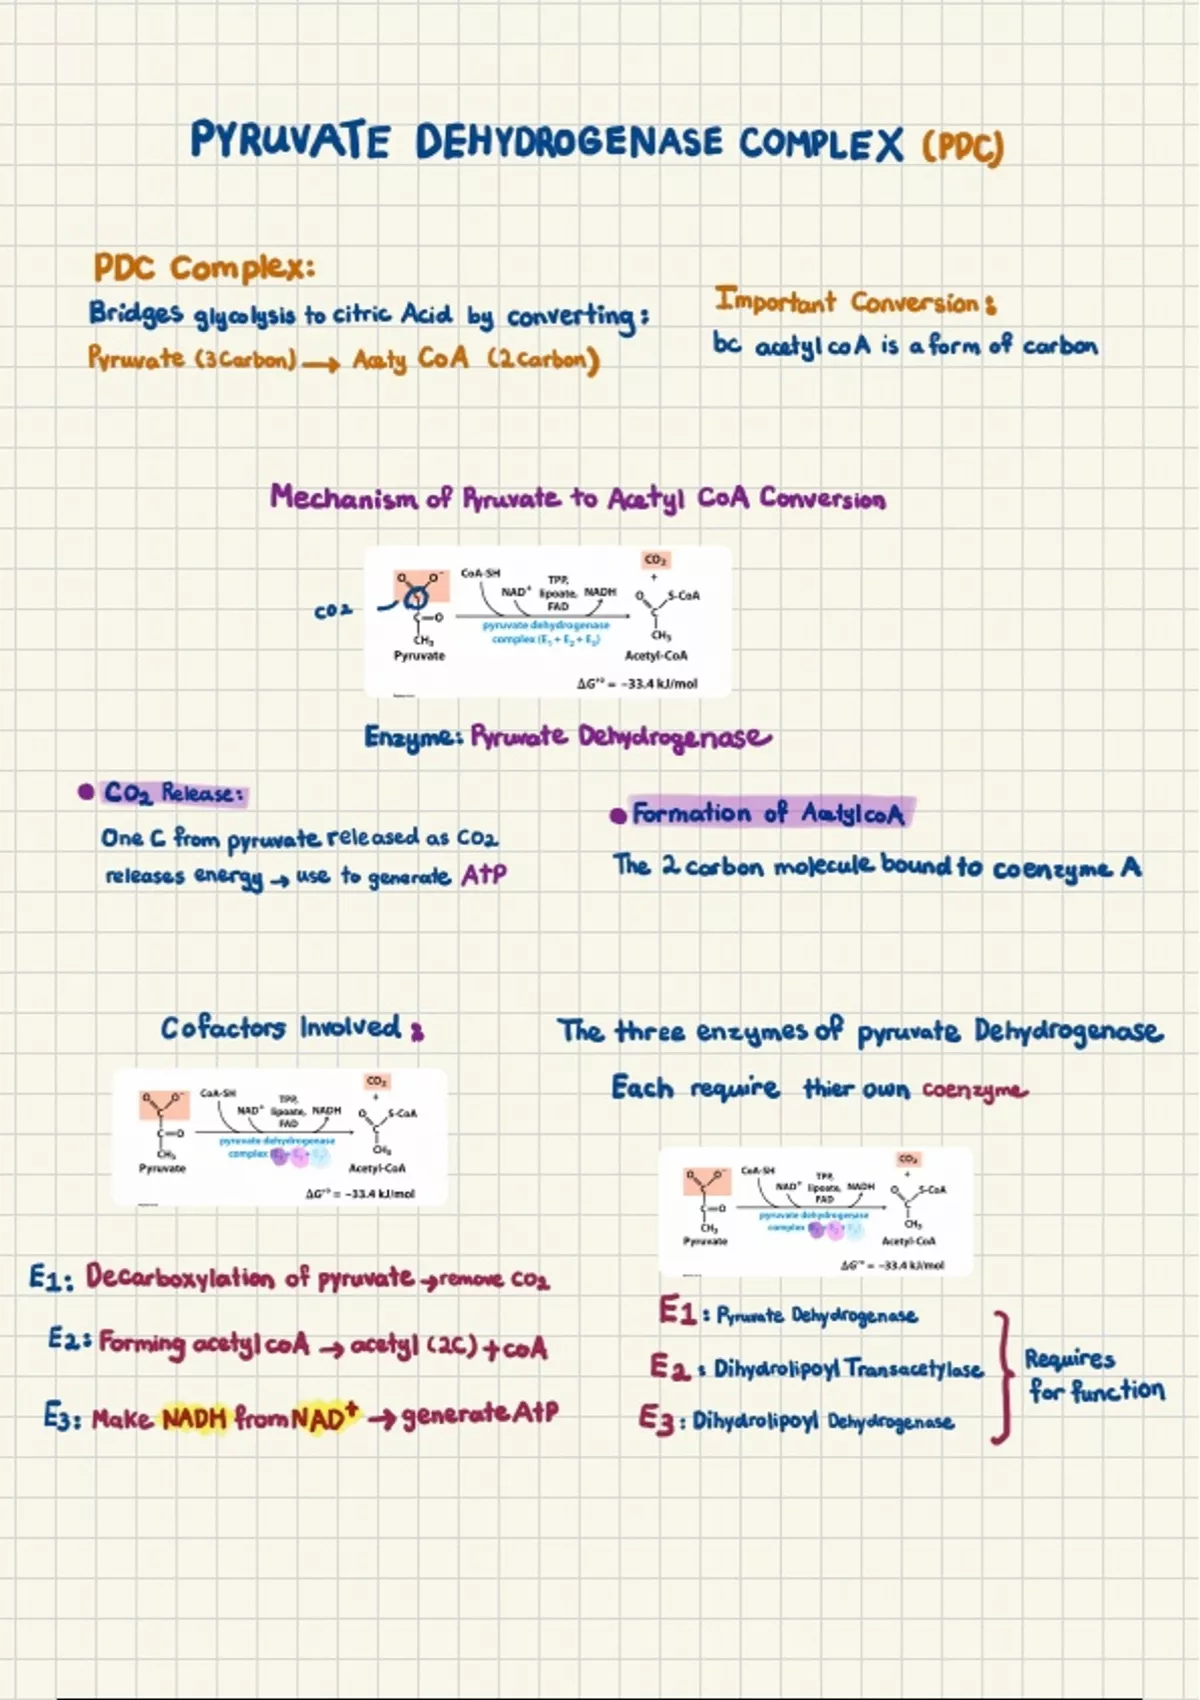 PYRUVATE DEHYDROGENASE COMPLEX (PDC)
PDC Complex:
Bridges glycolysis to citric Acid by converting:
Pyruvate (3 Carbon) → Acety CoA (2 Carbon)
Important Conversion:
bc acetyl coA is a form of carbon
Mechanism of Pyruvate to Acetyl CoA Conversion
CO2
O O-
C
C=O
CH3
Pyruvate
CoA-SH
NAD+
TPP,
lipoate,
FAD
NADH
pyruvate dehydrogenase
complex (E1 + E2 + E3)
CO2
+
O S-CoA
C
CH3
Acetyl-CoA
ΔG'° = −33.4 kJ/mol
Enzyme: Pyruvate Dehydrogenase
• CO2 Release:
One C from pyruvate released as CO2
releases energy → use to generate AtP
• Formation of AcetylcoA
The 2 carbon molecule bound to coenzyme A
Cofactors Involved :
O O-
C
C=O
CH3
Pyruvate
CoA-SH
NAD+
TPP,
lipoate,
FAD
NADH
pyruvate dehydrogenase
complex (E1 + E2 + E3)
CO2
+
O S-CoA
C
CH3
Acetyl-CoA
ΔG'° = −33.4 kJ/mol
E1: Decarboxylation of pyruvate → remove CO2
E2: Forming acetyl coA → acetyl (2C) + coA
E3: Make NADH from NAD+ → generate AtP
The three enzymes of pyruvate Dehydrogenase
Each require thier own coenzyme
O O-
C
C=O
CH3
Pyruvate
CoA-SH
NAD+
TPP,
lipoate,
FAD
NADH
pyruvate dehydrogenase
complex (E1 + E2 + E3)
CO2
+
O S-CoA
C
CH3
Acetyl-CoA
ΔG'° = −33.4 kJ/mol
E1 : Pyruvate Dehydrogenase
E2 : Dihydrolipoyl Transacetylase
E3 : Dihydrolipoyl Dehydrogenase
Requires
for function